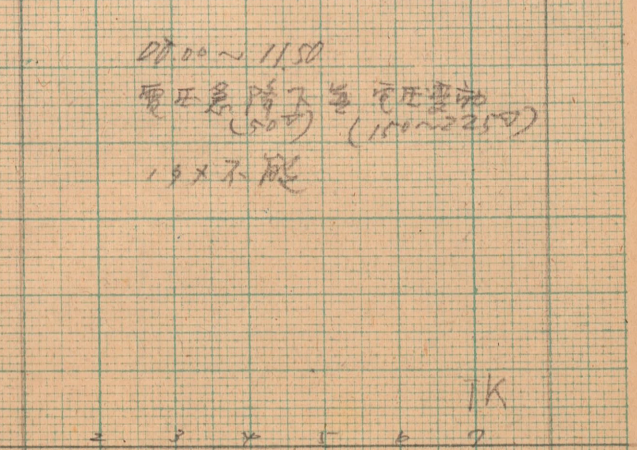 00.00~11.50
電圧急降下 電圧変動
(50V) (150~225V)
不能
1K
2 3 4 5 6 7